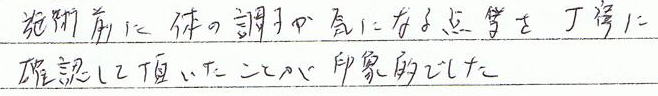 施術前に体の調子や気になる点等を丁寧に
確認して頂いたことが印象的でした